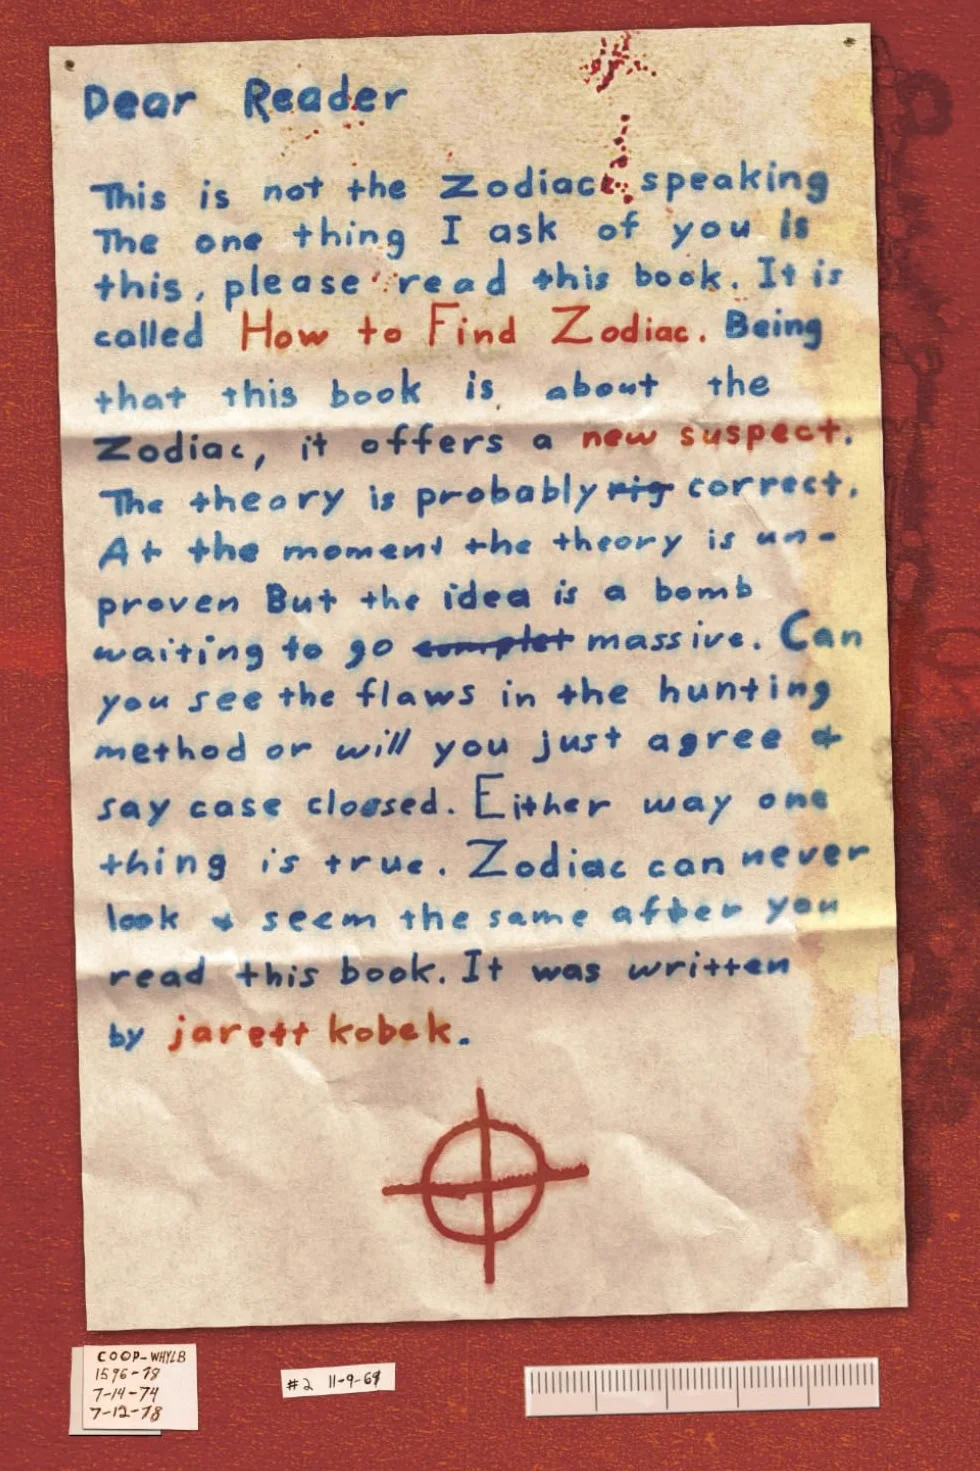 Dear Reader
This is not the Zodiac speaking
The one thing I ask of you is
this, please read this book. It is
called How to Find Zodiac. Being
that this book is about the
Zodiac, it offers a new suspect.
The theory is probably rig correct.
At the moment the theory is un-
proven But the idea is a bomb
waiting to go complet massive. Can
you see the flaws in the hunting
method or will you just agree &
say case cloosed. Either way one
thing is true. Zodiac can never
look & seem the same after you
read this book. It was written
by jarett kobek.
COOP-WHYLB
1596-78
7-14-74
7-12-78
#2 11-9-69